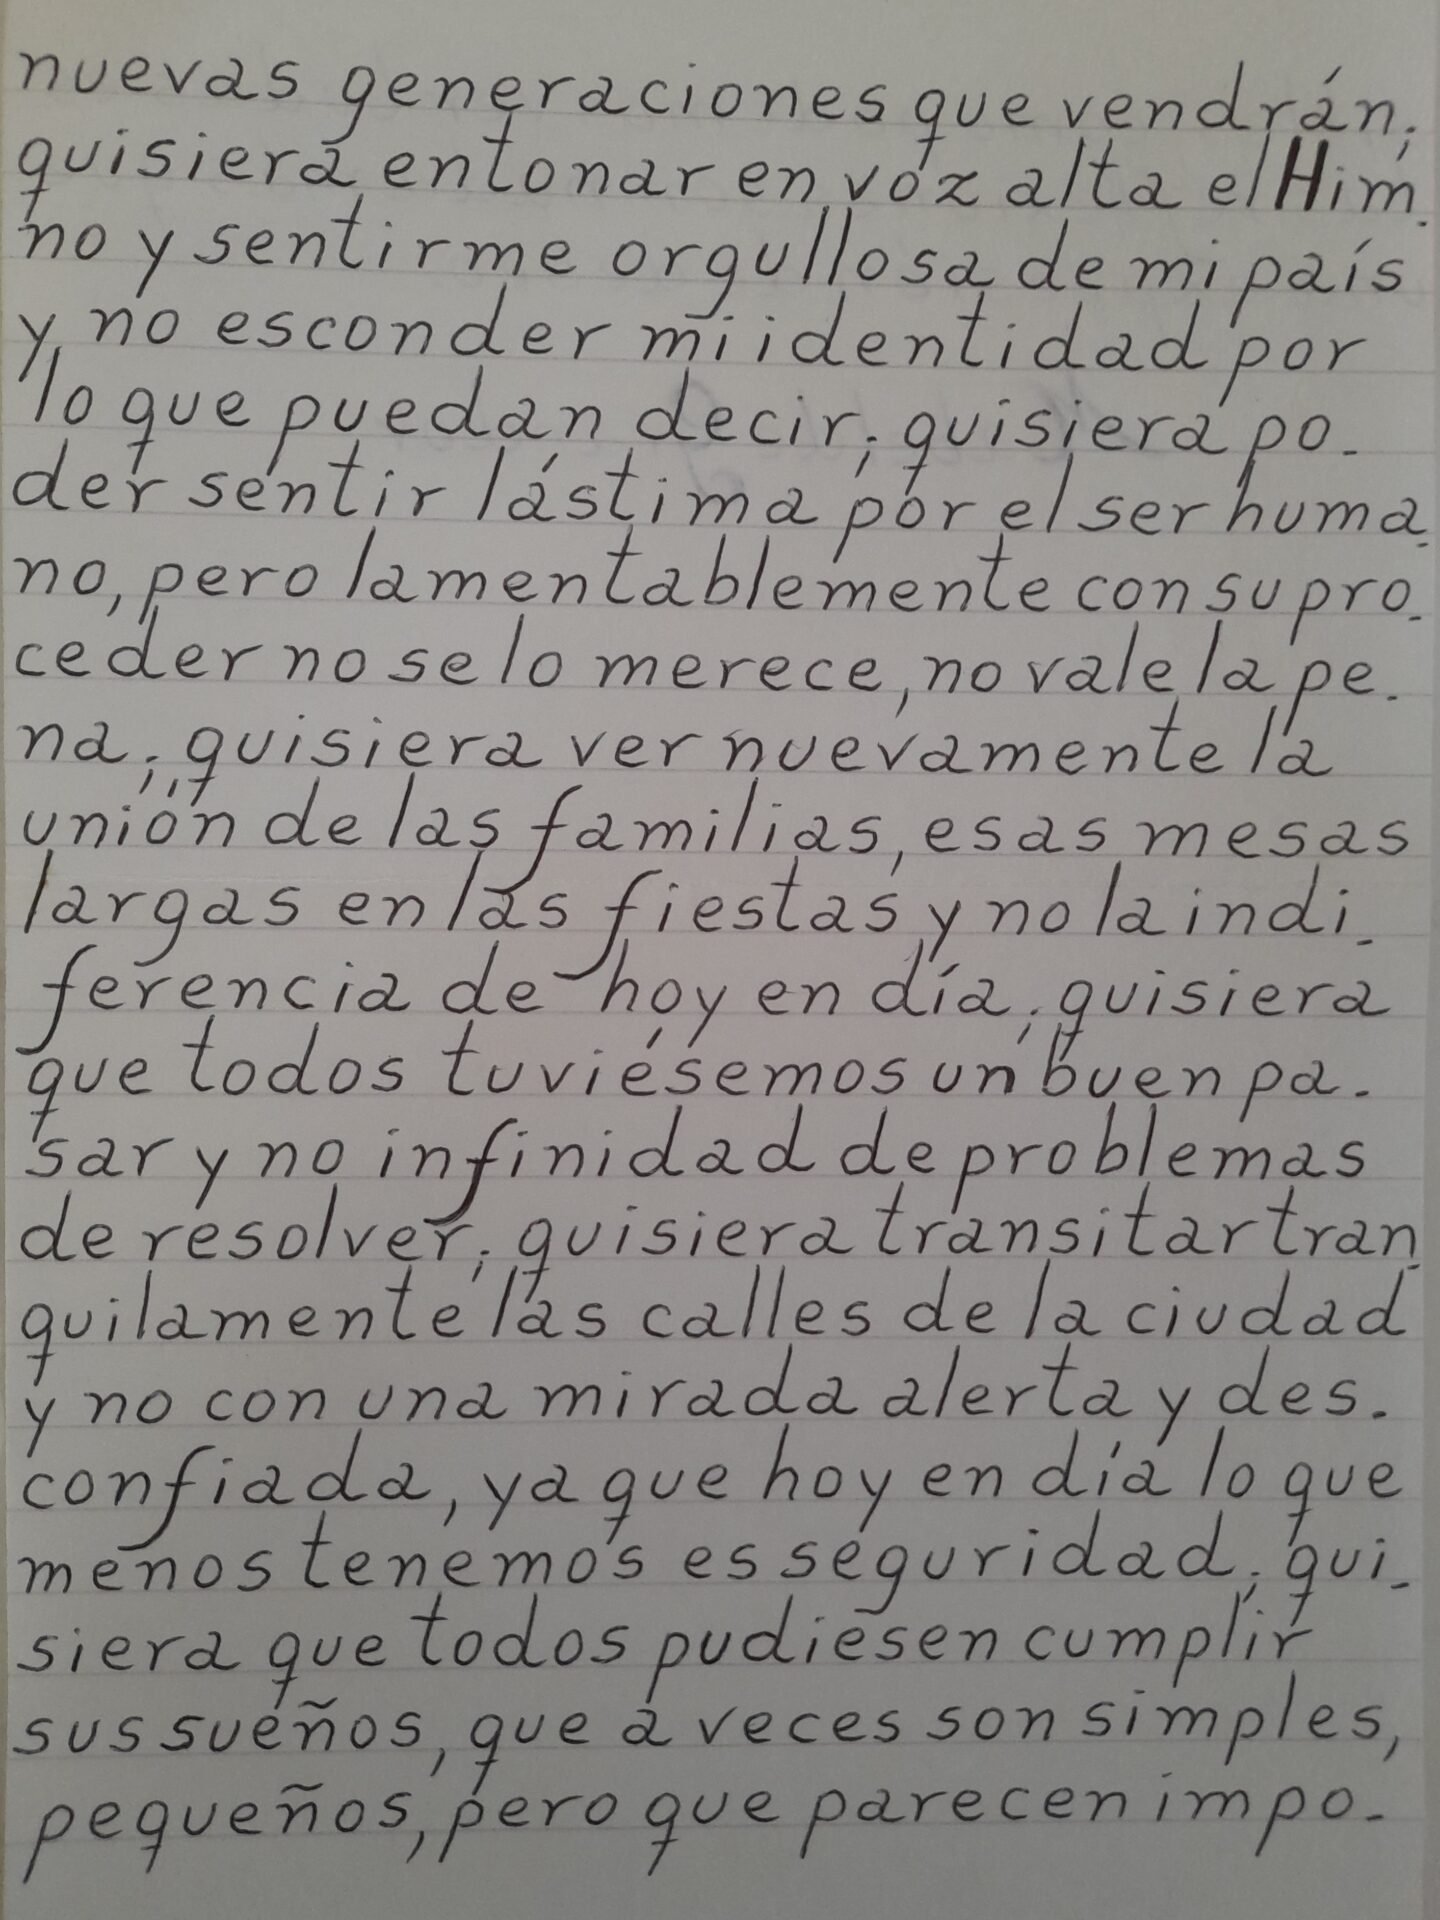 nuevas generaciones que vendrán;
quisiera entonar en voz alta el Him-
no y sentirme orgullosa de mi país
y no esconder mi identidad por
lo que puedan decir; quisiera po-
der sentir lástima por el ser huma-
no, pero lamentablemente con su pro-
ceder no se lo merece, no vale la pe-
na; quisiera ver nuevamente la
unión de las familias, esas mesas
largas en las fiestas y no la indi-
ferencia de hoy en día; quisiera
que todos tuviésemos un buen pa-
sar y no infinidad de problemas
de resolver; quisiera transitar tran-
quilamente las calles de la ciudad
y no con una mirada alerta y des-
confiada, ya que hoy en día lo que
menos tenemos es seguridad; qui-
siera que todos pudiesen cumplir
sus sueños, que a veces son simples,
pequeños, pero que parecen impo-